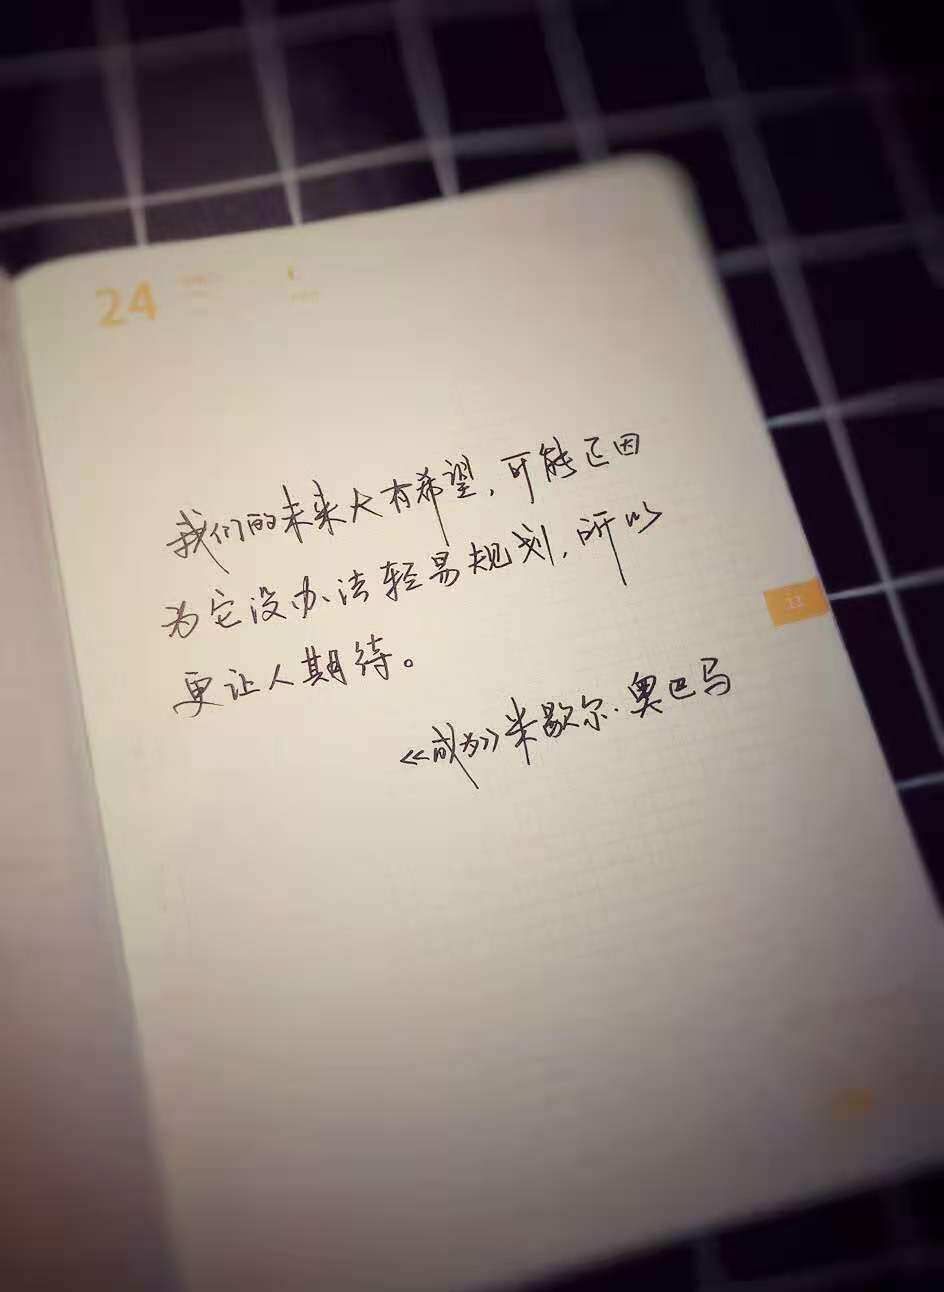 24
我们的未来大有希望，可能正因
为它没办法轻易规划，所以
更让人期待。
《成为》米歇尔·奥巴马
11